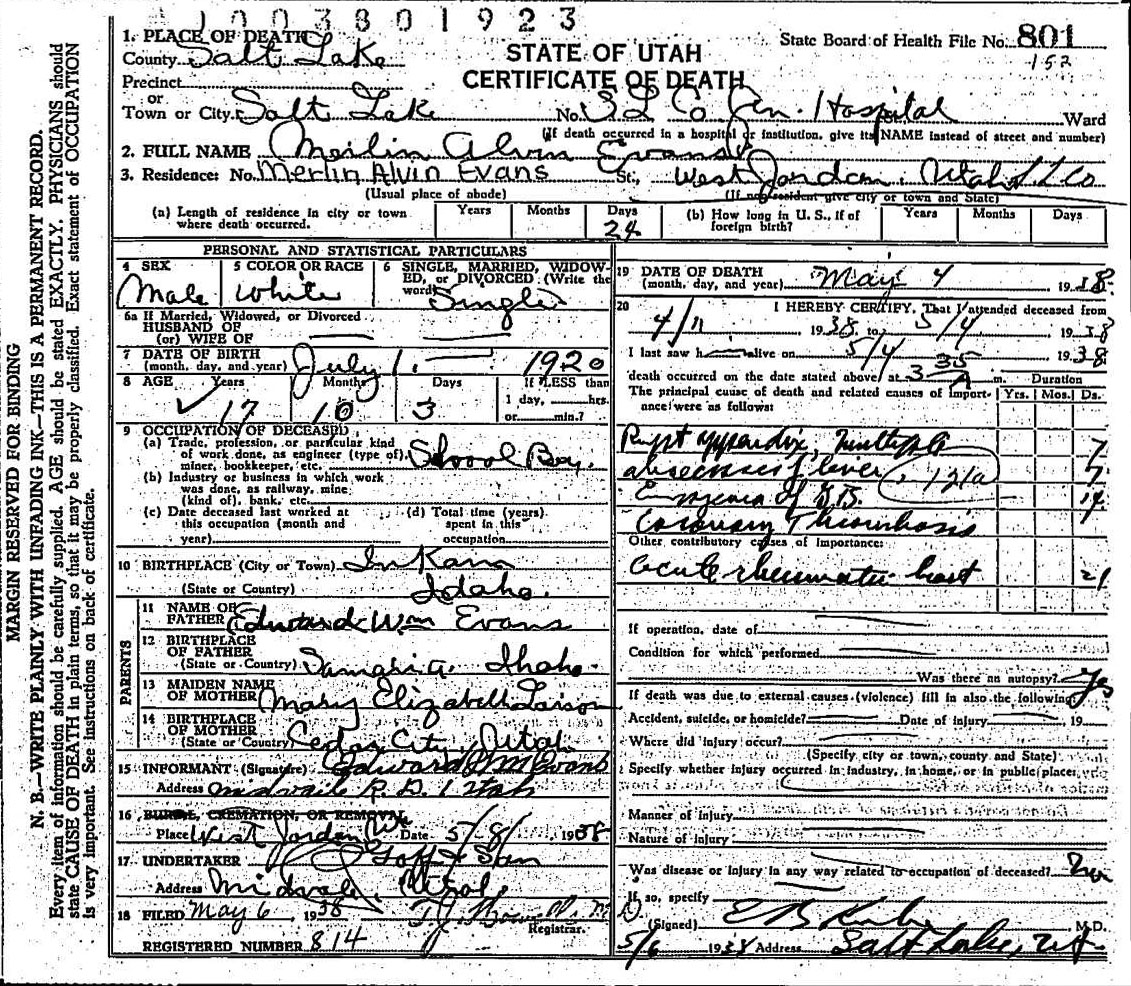 1003801923
1. PLACE OF DEATH
County Salt Lake
Precinct
or
Town or City Salt Lake No. S L Co Gen. Hospital Ward
(If death occurred in a hospital or institution, give its NAME instead of street and number)
STATE OF UTAH
CERTIFICATE OF DEATH
State Board of Health File No. 801
152
2. FULL NAME Merlin Alvin Evans
3. Residence: No. Merlin Alvin Evans St., West Jordan, Utah S L Co
(Usual place of abode) (If non-resident give city or town and State)
(a) Length of residence in city or town where death occurred. Years Months Days 24
(b) How long in U. S., if of foreign birth? Years Months Days
PERSONAL AND STATISTICAL PARTICULARS
4 SEX Male
5 COLOR OR RACE White
6 SINGLE, MARRIED, WIDOWED, or DIVORCED (Write the word) Single
6a If Married, Widowed, or Divorced
HUSBAND OF
(or) WIFE OF
7 DATE OF BIRTH
(month, day, and year) July 1. 1920
8 AGE Years 17 Months 10 Days 3 If LESS than
1 day, hrs.
or min.?
9 OCCUPATION OF DECEASED
(a) Trade, profession, or particular kind
of work done, as engineer (type of),
miner, bookkeeper, etc. School Boy.
(b) Industry or business in which work
was done, as railway, mine
(kind of), bank, etc.
(c) Date deceased last worked at
this occupation (month and
year)
(d) Total time (years)
spent in this
occupation
10 BIRTHPLACE (City or Town) In Kam
(State or Country) Idaho.
PARENTS
11 NAME OF
FATHER Edward Wm Evans
12 BIRTHPLACE
OF FATHER
(State or Country) Samaria Idaho.
13 MAIDEN NAME
OF MOTHER Mary Elizabeth Larson
14 BIRTHPLACE
OF MOTHER
(State or Country) Cedar City, Utah
15 INFORMANT (Signature) Edward Wm Evans
Address Midvale R. D. 1 Utah
16 BURIAL, CREMATION, OR REMOVAL
Place West Jordan Date 5/8/ 1938
17 UNDERTAKER Goff & Son
Address Midvale, Utah
18 FILED May 6, 1938
Registrar.
REGISTERED NUMBER 814
19 DATE OF DEATH
(month, day, and year) May 4 1938
20 I HEREBY CERTIFY, That I attended deceased from
4/11 1938 to 5/4 1938
I last saw h alive on 5/4 1938
death occurred on the date stated above at 3 35 A m. Duration
The principal cause of death and related causes of importance were as follows: Yrs. Mos. Ds.
Rupt appendix, multiple 7
abscesses of liver 121a 7
Empyema of G.B. 14
Coronary Thrombosis
Other contributory causes of importance:
acute rheumatic heart 21
If operation, date of
Condition for which performed
Was there an autopsy? Yes
If death was due to external causes (violence) fill in also the following
Accident, suicide, or homicide? Date of injury 19
Where did injury occur?
(Specify city or town, county and State)
Specify whether injury occurred in industry, in home, or in public place
Manner of injury
Nature of injury
Was disease or injury in any way related to occupation of deceased? No
If so, specify
(Signed) M.D.
5/6 1938 Address Salt Lake, Ut.
MARGIN RESERVED FOR BINDING
N. B.—WRITE PLAINLY WITH UNFADING INK—THIS IS A PERMANENT RECORD.
Every item of information should be carefully supplied. AGE should be stated EXACTLY. PHYSICIANS should
state CAUSE OF DEATH in plain terms, so that it may be properly classified. Exact statement of OCCUPATION
is very important. See instructions on back of certificate.